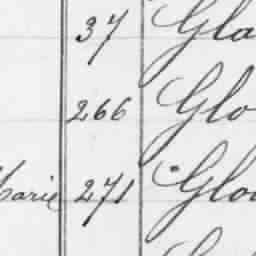 37 Gla
266 Glo
Marie 271 Glou